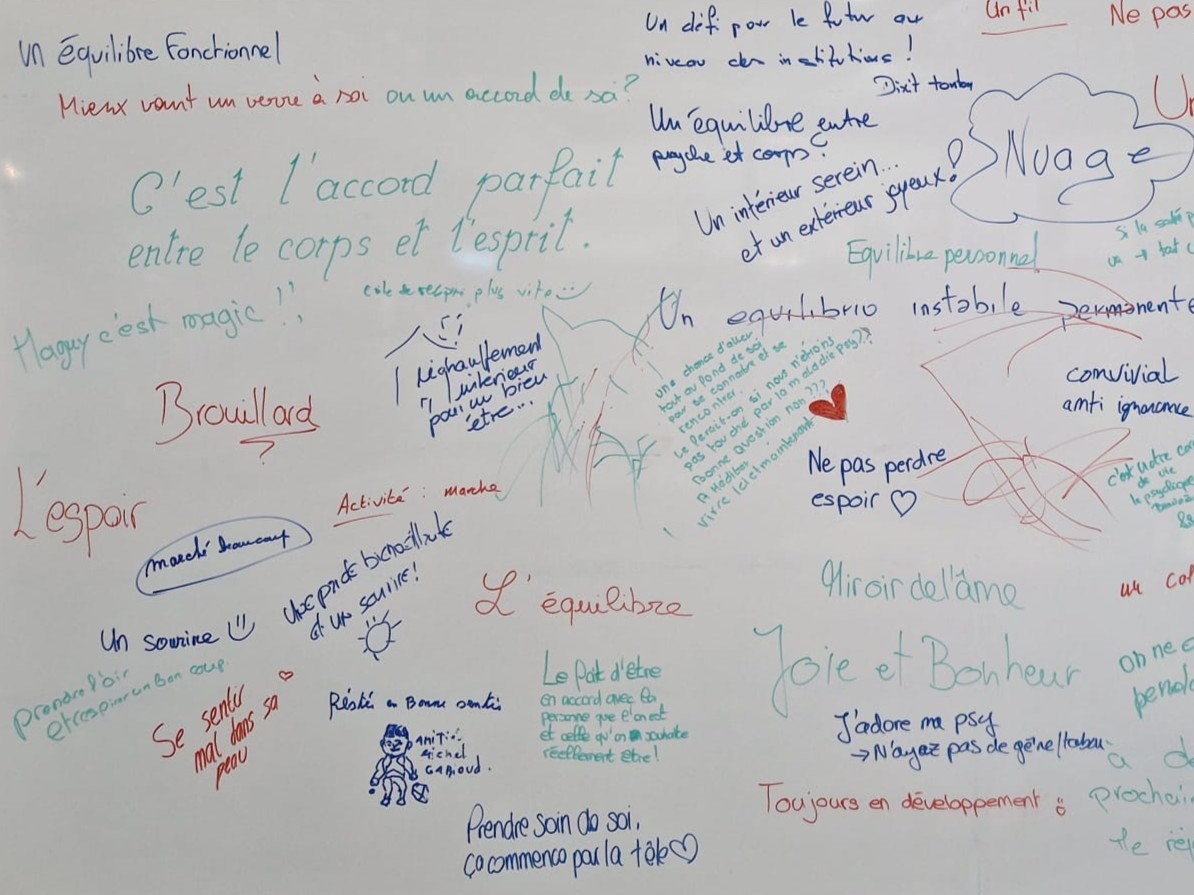 Un équilibre Fonctionnel
Mieux vaut un verre à soi ou un accord de soi?
Un défi pour le futur au
niveau des institutions!
Un fil
Ne pas
C'est l'accord parfait
entre le corps et l'esprit.
Un équilibre entre
psyche et corps?
Un intérieur serein...
et un extérieur joyeux!
Nuage
Equilibre personnel
Si la
Maguy c'est magic!!
plus vite
Un equilibrio instabile permanente
réchauffement
intérieur
pour un bien
être...
Une chance d'aller
tout au fond de soi
pour se connaître et se
rencontrer.
Le ferait-on si nous n'étions
pas touché par la maladie psy??
Bonne question non???
A Méditer
Vivre Ici et maintenant
Brouillard
?
convivial
anti ignorance
Ne pas perdre
espoir
L'espoir
Activité : marche
marché beaucoup
bienveillante
et un sourire!
c'est notre
de vie
le psychique
L'équilibre
Miroir de l'âme
Un sourire
Prendre l'air
et respirer un Bon coup
Se sentir
mal dans sa
peau
Joie et Bonheur
on ne
Résté en Bonne sentée
AMITIÉ
Michel
GABIOUD.
Le fait d'être
en accord avec la
personne que l'on est
et celle qu'on souhaite
réellement être!
J'adore ma psy
→ N'ayez pas de gêne/tabou
Toujours en développement
Prendre soin de soi,
ça commence par la tête